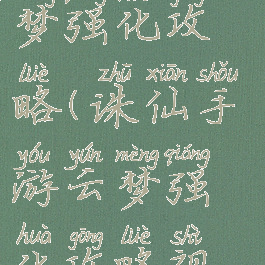 梦强化攻
lüè zhū xiān shǒu
略(诛仙手
yóu yún mèng qiáng
游云梦强
huà gōng lüè shì